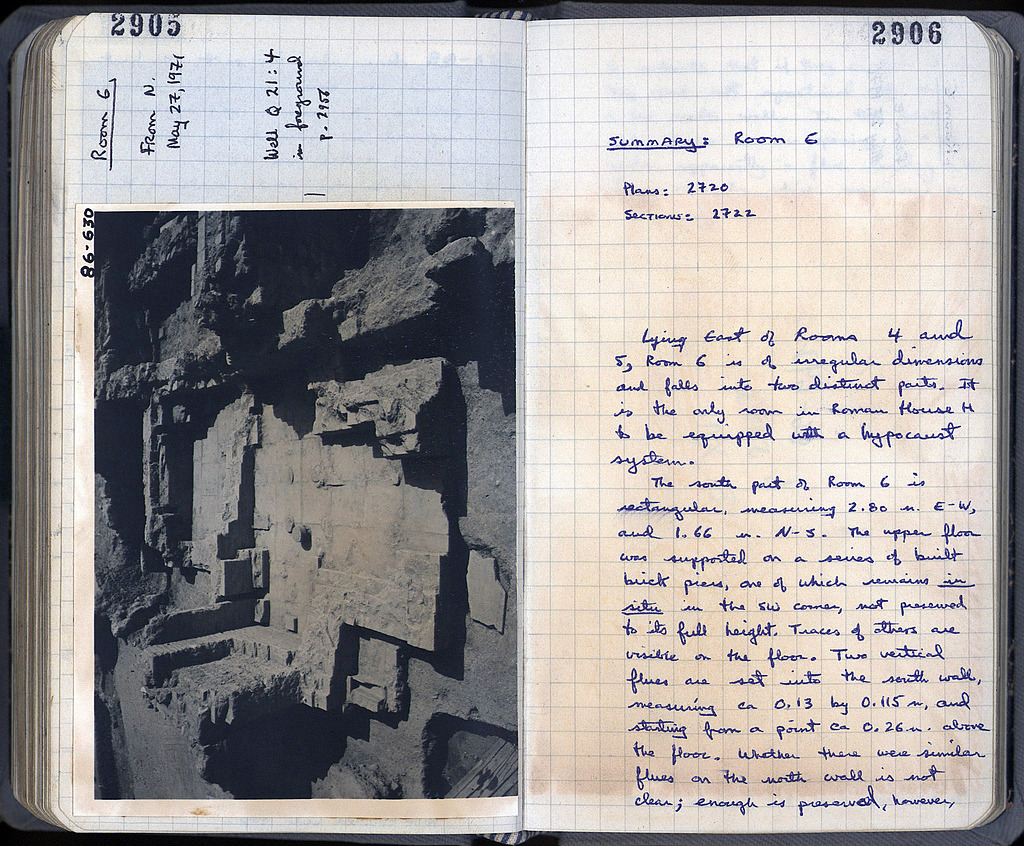 2905
Room 6
From N.
May 27, 1971
Well Q 21:4
in foreground
p. 2956
86-630
2906
SUMMARY: Room 6
Plans: 2720
Sections: 2722
Lying East of Rooms 4 and
5, Room 6 is of irregular dimensions
and falls into two distinct parts. It
is the only room in Roman House H
to be equipped with a hypocaust
system.
The south part of Room 6 is
rectangular, measuring 2.80 m. E-W,
and 1.66 m. N-S. The upper floor
was supported on a series of built
brick piers, one of which remains in
situ in the SW corner, not preserved
to its full height. Traces of others are
visible on the floor. Two vertical
flues are set into the south wall,
measuring ca 0.13 by 0.115 m, and
starting from a point ca 0.26 m. above
the floor. Whether there were similar
flues on the north wall is not
clear; enough is preserved, however,